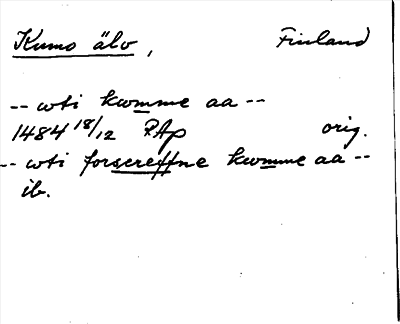 Kumo älv, Finland
-- wti kwmme aa --
1484 18/12 RAp orig.
-- wti forscreffne kwmme aa --
ib.